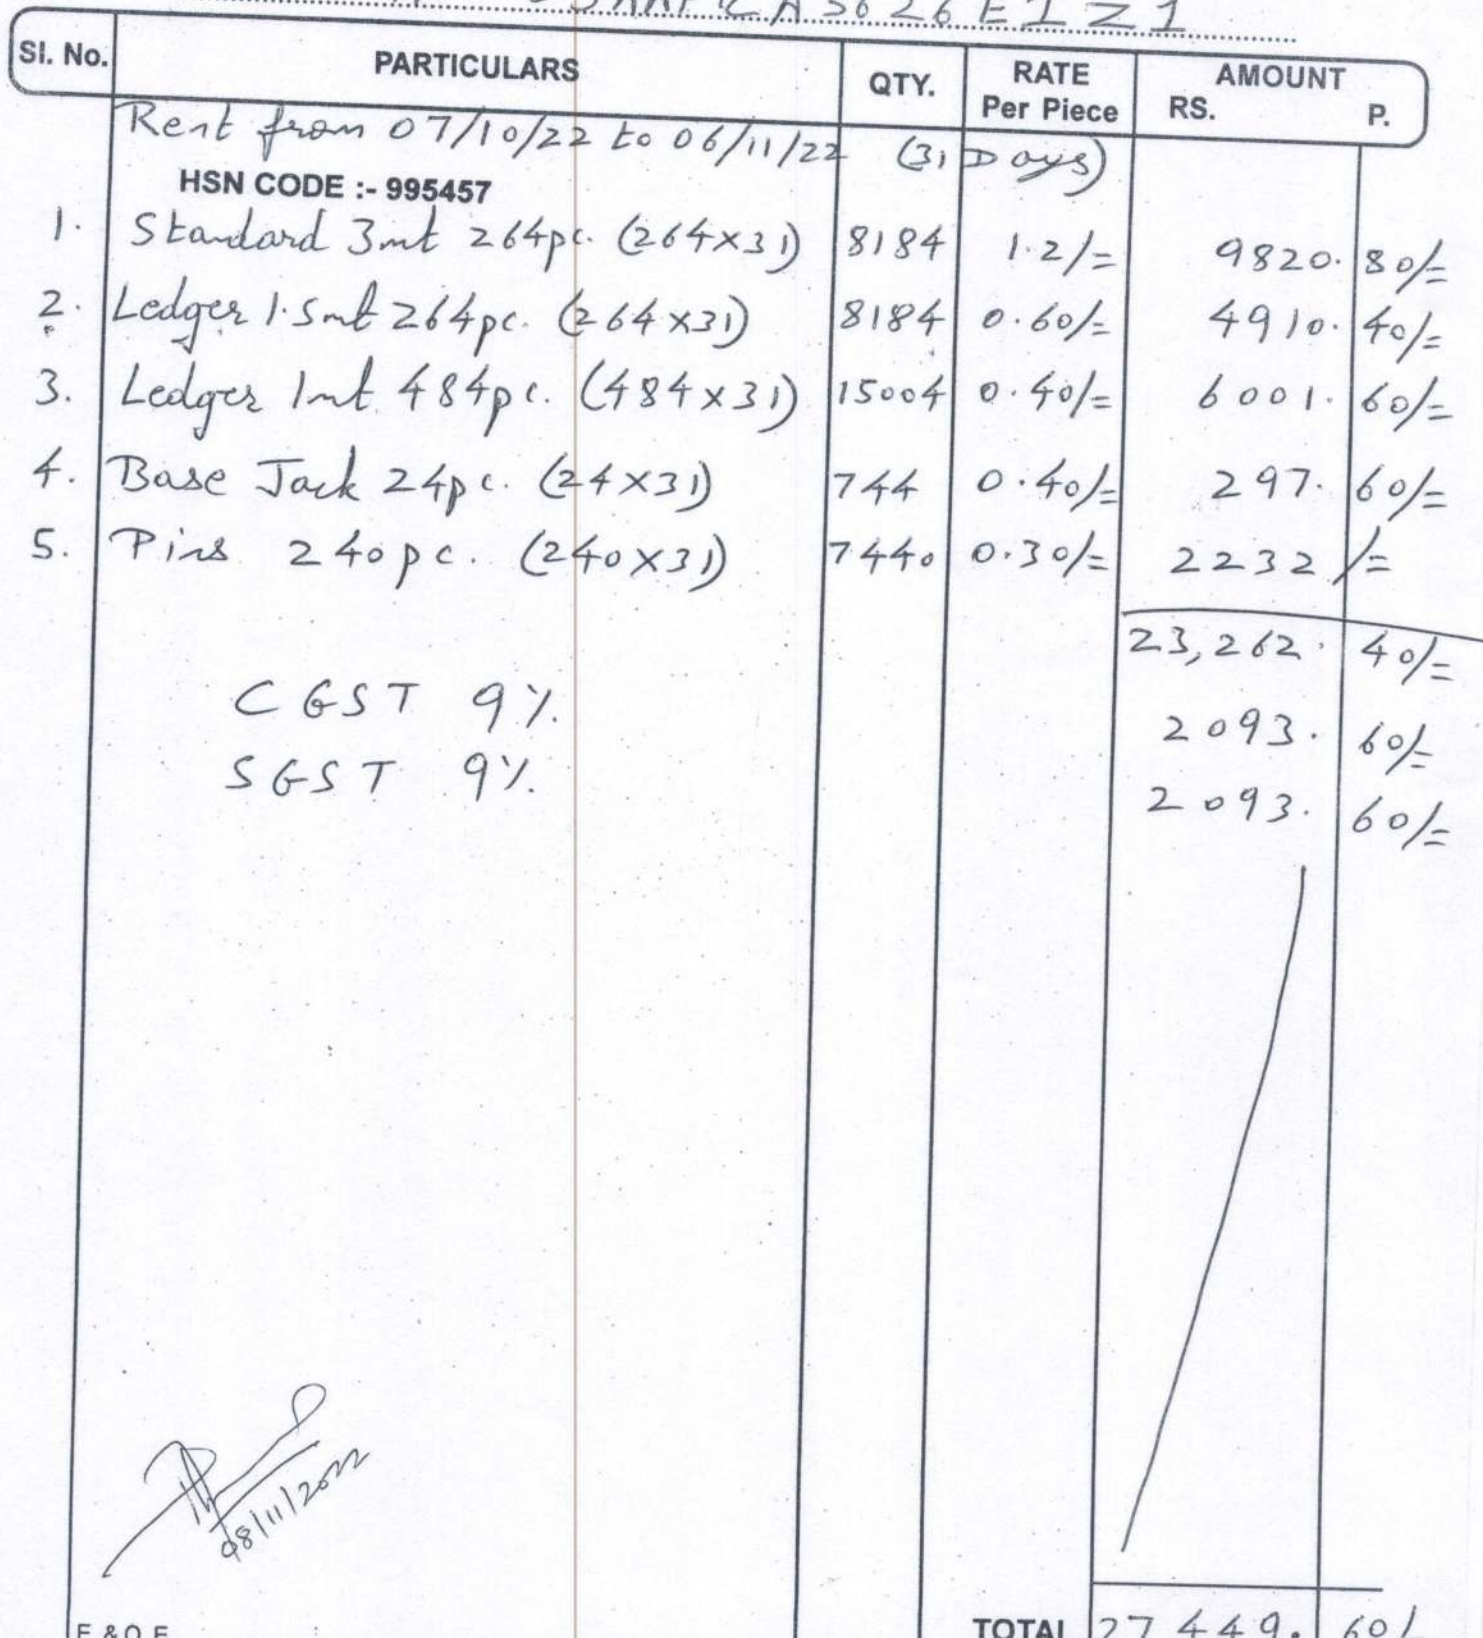 CA5626E1Z1
Sl. No. PARTICULARS QTY. RATE Per Piece AMOUNT RS. P.
Rent from 07/10/22 to 06/11/22 (31 Days)
HSN CODE :- 995457
1. Standard 3mt 264pc. (264×31) 8184 1.2/= 9820. 80/=
2. Ledger 1.5mt 264pc. (264×31) 8184 0.60/= 4910. 40/=
3. Ledger 1mt 484pc. (484×31) 15004 0.40/= 6001. 60/=
4. Base Jack 24pc. (24×31) 744 0.40/= 297. 60/=
5. Pins 240pc. (240×31) 7440 0.30/= 2232/=
23,262. 40/=
CGST 9% 2093. 60/=
SGST 9% 2093. 60/=
08/11/2022
E & O.E. TOTAL 27449. 60/